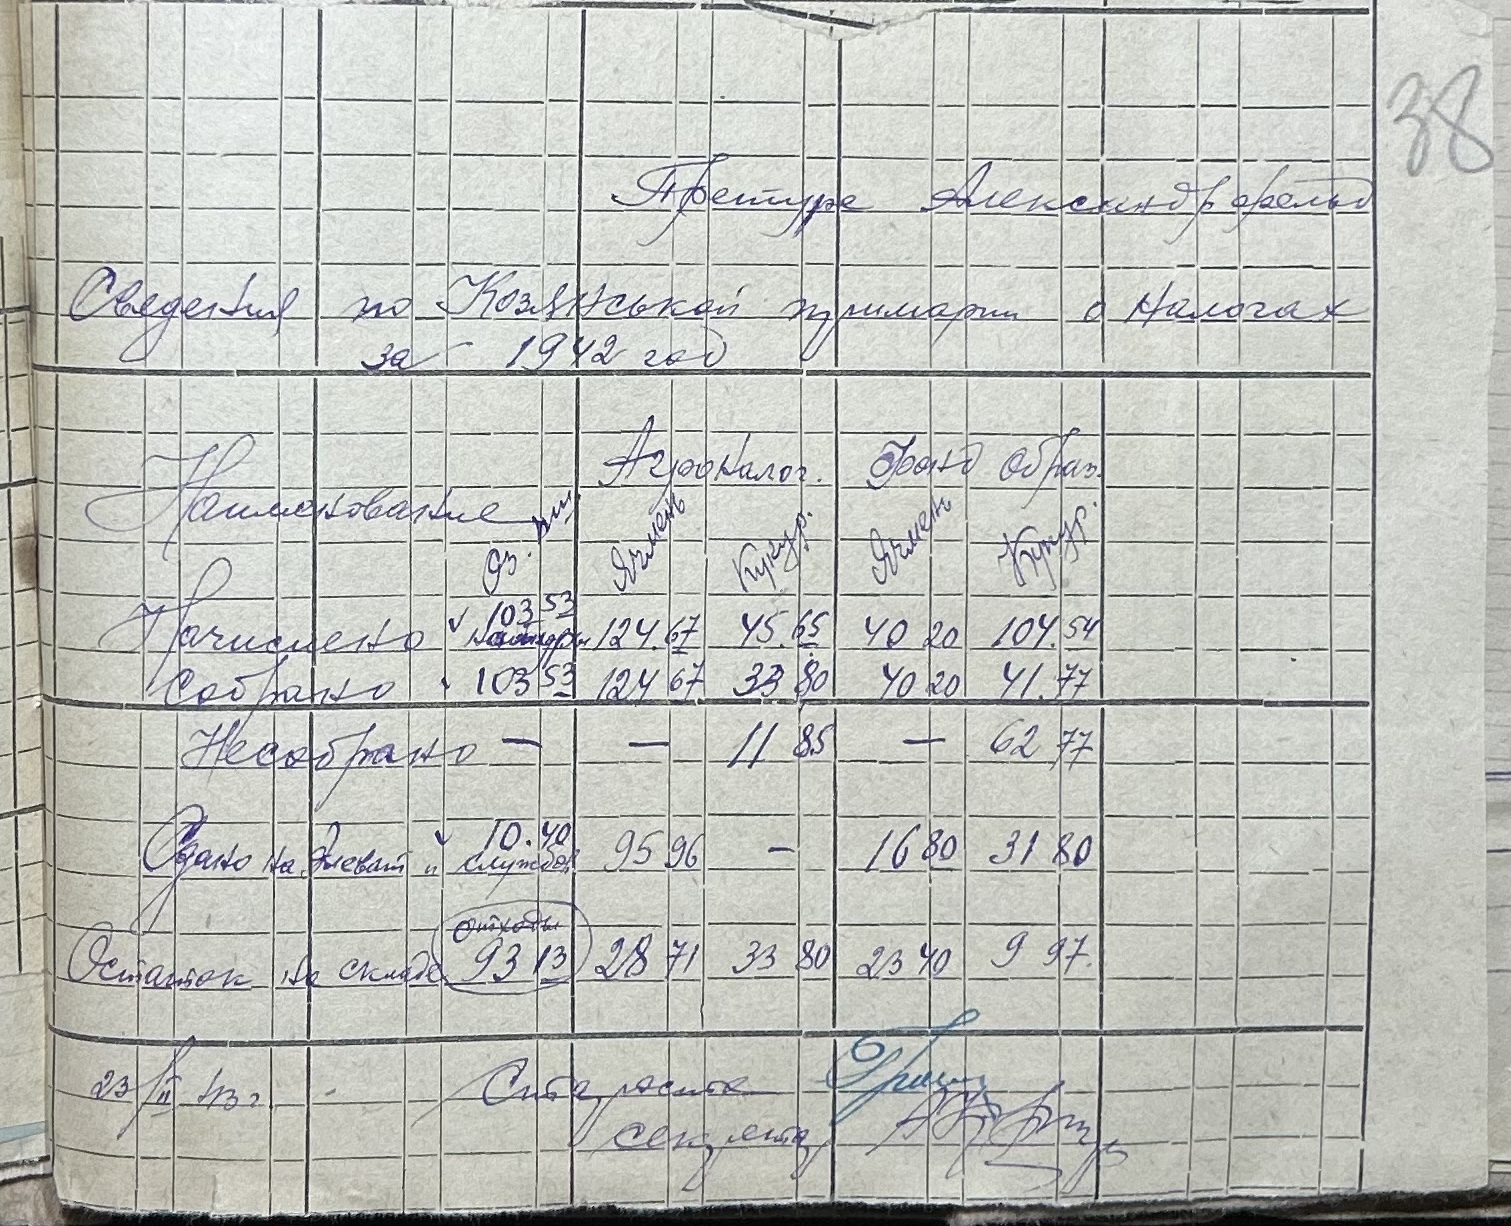 38
Претуре Александрфельд
Сведения по Козянськой примарии о налогах
за 1942 год
Агроналог. Фонд образ.
Наименование
оз. пш. Ячмень Кукур. Ячмень Кукур.
103 53
Начислено 124.67 45.65 40 20 104.54
Собрано 103 53 124 67 33 80 40 20 41.77
Несобрано — — 11 85 — 62 77
10.40
Сдано на Элеват и службой 95 96 — 16 80 31 80
отходы
Остаток на складе 93 13 28 71 33 80 23 40 9 97.
23/II 43 г. Староста
секретар